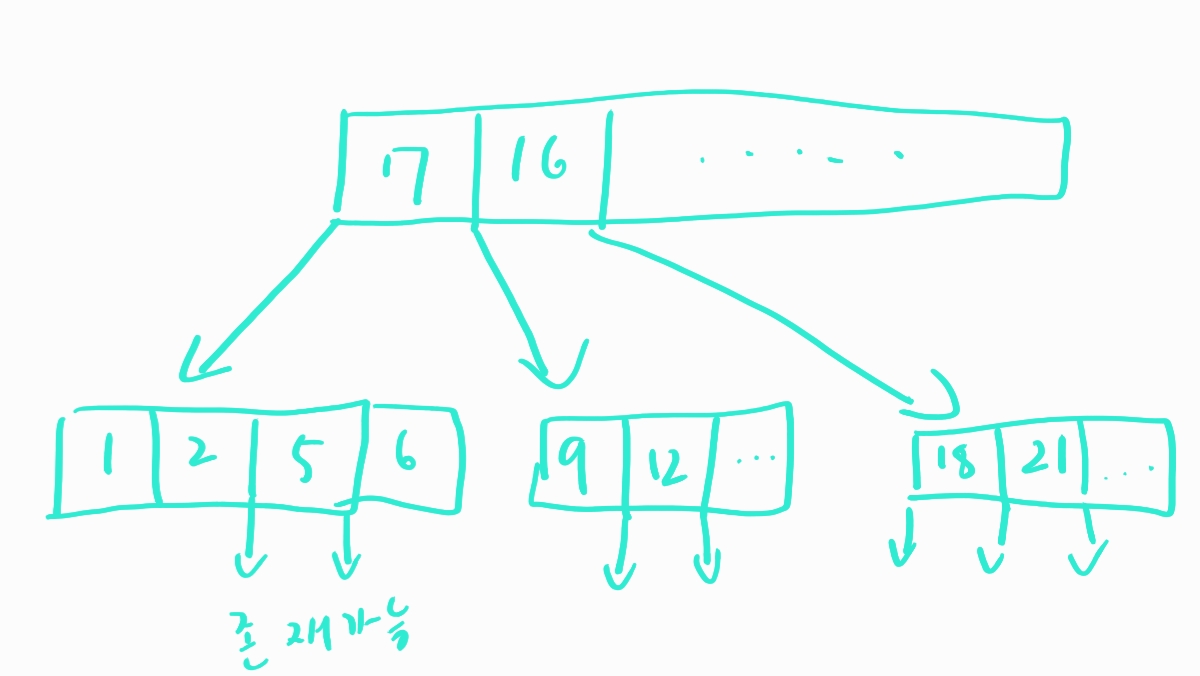 7 16 .....
1 2 5 6 9 12 ... 18 21 ...
존재가능